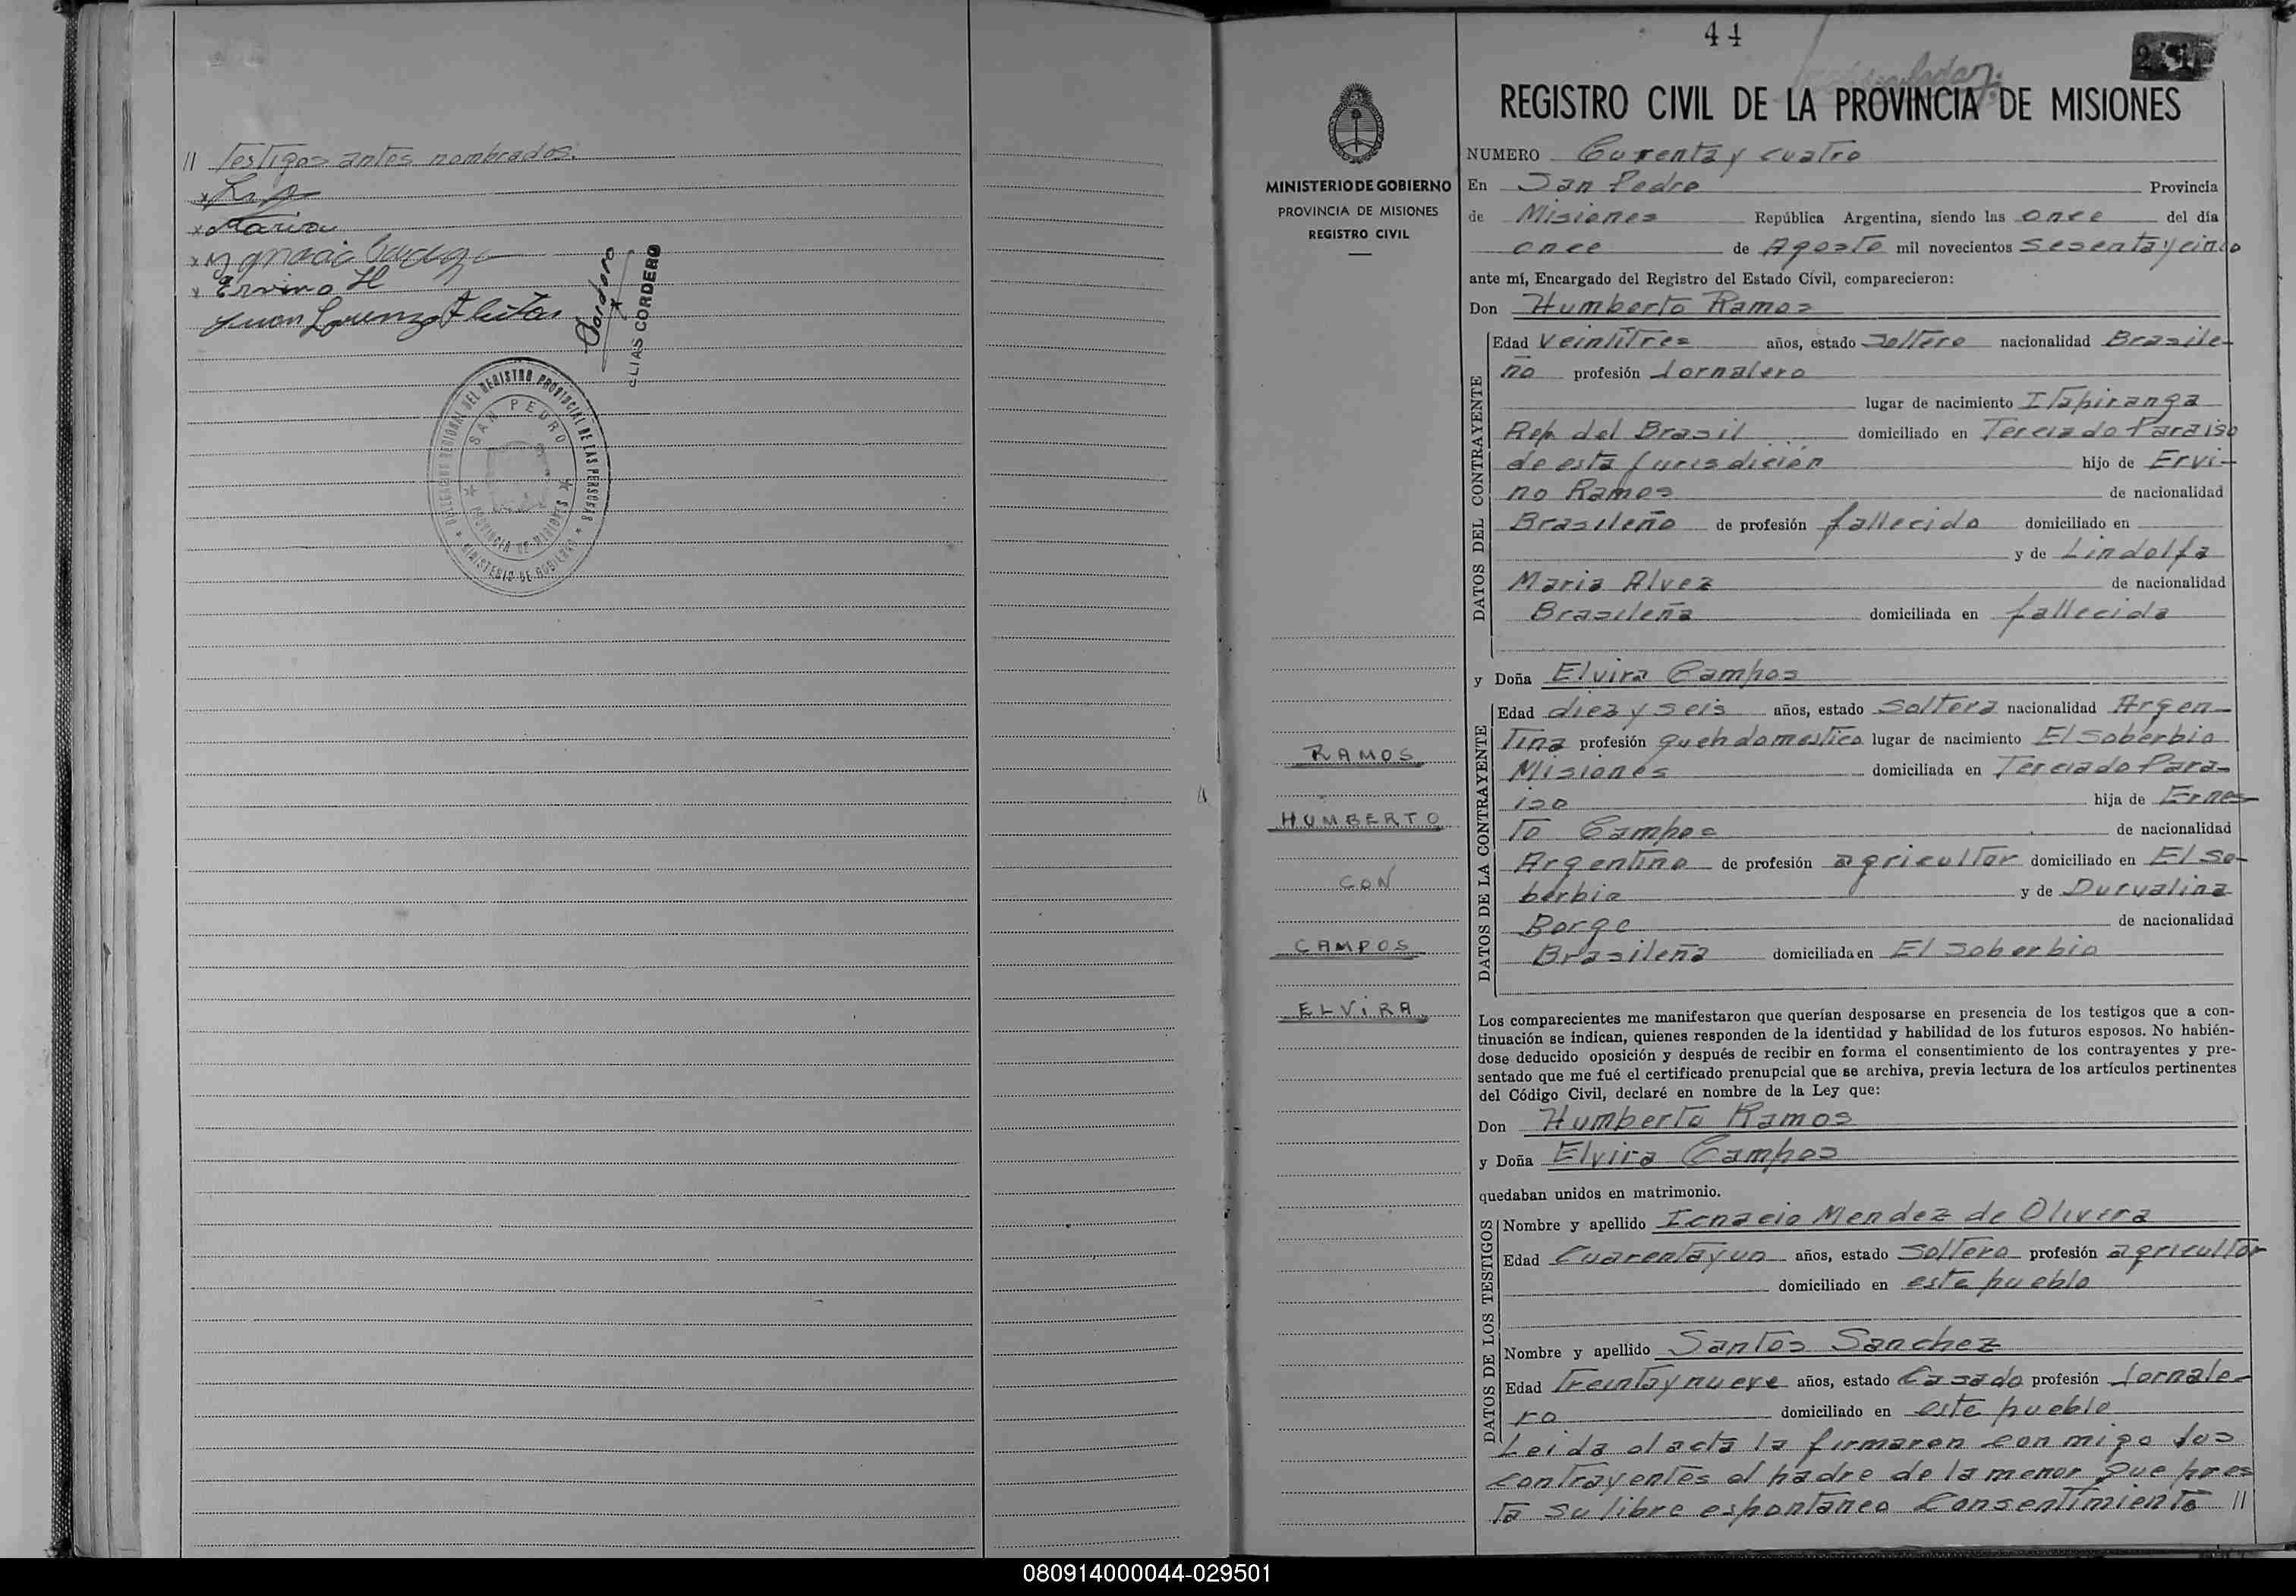 // Testigos antes nombrados.
x
x Maria
x
x Ervino H
Juan Lorenzo
Cordero
ELIAS CORDERO
DELEGACION REGIONAL DEL REGISTRO PROVINCIAL DE LAS PERSONAS
SAN PEDRO
PROVINCIA DE MISIONES
MINISTERIO DE GOBIERNO
44
REGISTRO CIVIL DE LA PROVINCIA DE MISIONES
MINISTERIO DE GOBIERNO
PROVINCIA DE MISIONES
REGISTRO CIVIL
RAMOS
HUMBERTO
CON
CAMPOS
ELViRA
NUMERO Curenta y cuatro
En San Pedro Provincia
de Misiones República Argentina, siendo las once del día
once de Agosto mil novecientos sesenta y cinco
ante mí, Encargado del Registro del Estado Civil, comparecieron:
Don Humberto Ramos
DATOS DEL CONTRAYENTE
Edad Veintitres años, estado Soltero nacionalidad Brasile-
ño profesión Jornalero
lugar de nacimiento Itapiranga
Rep. del Brasil domiciliado en Terciado Paraiso
de esta jurisdición hijo de Ervi-
no Ramos de nacionalidad
Brasileño de profesión fallecido domiciliado en
y de Lindolfa
Maria Alvez de nacionalidad
Brasileña domiciliada en fallecida
y Doña Elvira Campos
DATOS DE LA CONTRAYENTE
Edad diez y seis años, estado Soltera nacionalidad Argen-
tina profesión queh domestico lugar de nacimiento El Soberbio
Misiones domiciliada en Terciado Para-
iso hija de Ernes-
to Campos de nacionalidad
Argentino de profesión agricultor domiciliado en El So-
berbio y de Durvalina
Borge de nacionalidad
Brasileña domiciliada en El Soberbio
Los comparecientes me manifestaron que querían desposarse en presencia de los testigos que a con-
tinuación se indican, quienes responden de la identidad y habilidad de los futuros esposos. No habién-
dose deducido oposición y después de recibir en forma el consentimiento de los contrayentes y pre-
sentado que me fué el certificado prenupcial que se archiva, previa lectura de los artículos pertinentes
del Código Civil, declaré en nombre de la Ley que:
Don Humberto Ramos
y Doña Elvira Campos
quedaban unidos en matrimonio.
DATOS DE LOS TESTIGOS
Nombre y apellido Icnacio Mendez de Olivera
Edad Cuarentayun años, estado Soltero profesión agricultor
domiciliado en este pueblo
Nombre y apellido Santos Sanchez
Edad Treintaynueve años, estado Casado profesión Jornale-
ro domiciliado en este pueblo
Leida el acta la firmaron conmigo los
contrayentes el padre de la menor que pres
ta su libre espontaneo Consentimiento //
080914000044-029501